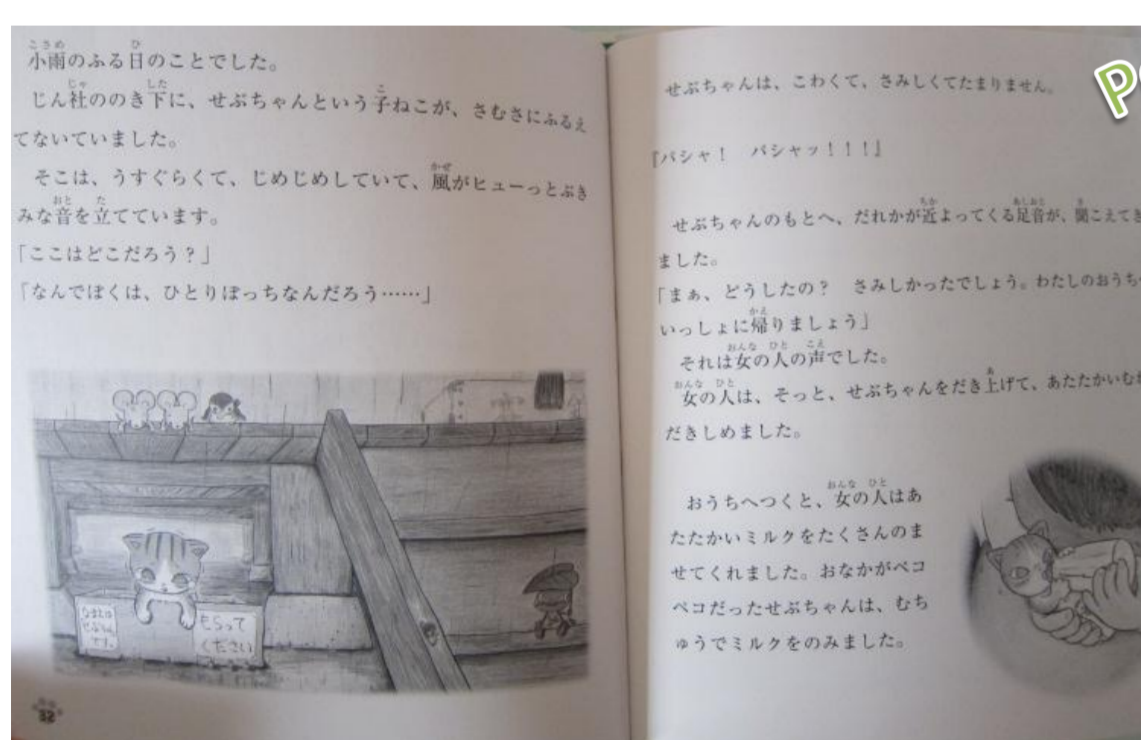 小雨のふる日のことでした。
じん社ののき下に、せぶちゃんという子ねこが、さむさにふるえ
てないていました。
そこは、うすぐらくて、じめじめしていて、風がヒューっとぶき
みな音を立てています。
「ここはどこだろう？」
「なんでぼくは、ひとりぼっちなんだろう……」
なまえは
せぶちゃん
です。
もらって
ください
32
せぶちゃんは、こわくて、さみしくてたまりません。
『パシャ！　パシャッ！！！』
せぶちゃんのもとへ、だれかが近よってくる足音が、聞こえてき
ました。
「まぁ、どうしたの？　さみしかったでしょう。わたしのおうち
いっしょに帰りましょう」
それは女の人の声でした。
女の人は、そっと、せぶちゃんをだき上げて、あたたかいむ
だきしめました。
おうちへつくと、女の人はあ
たたかいミルクをたくさんのま
せてくれました。おなかがペコ
ペコだったせぶちゃんは、むち
ゅうでミルクをのみました。